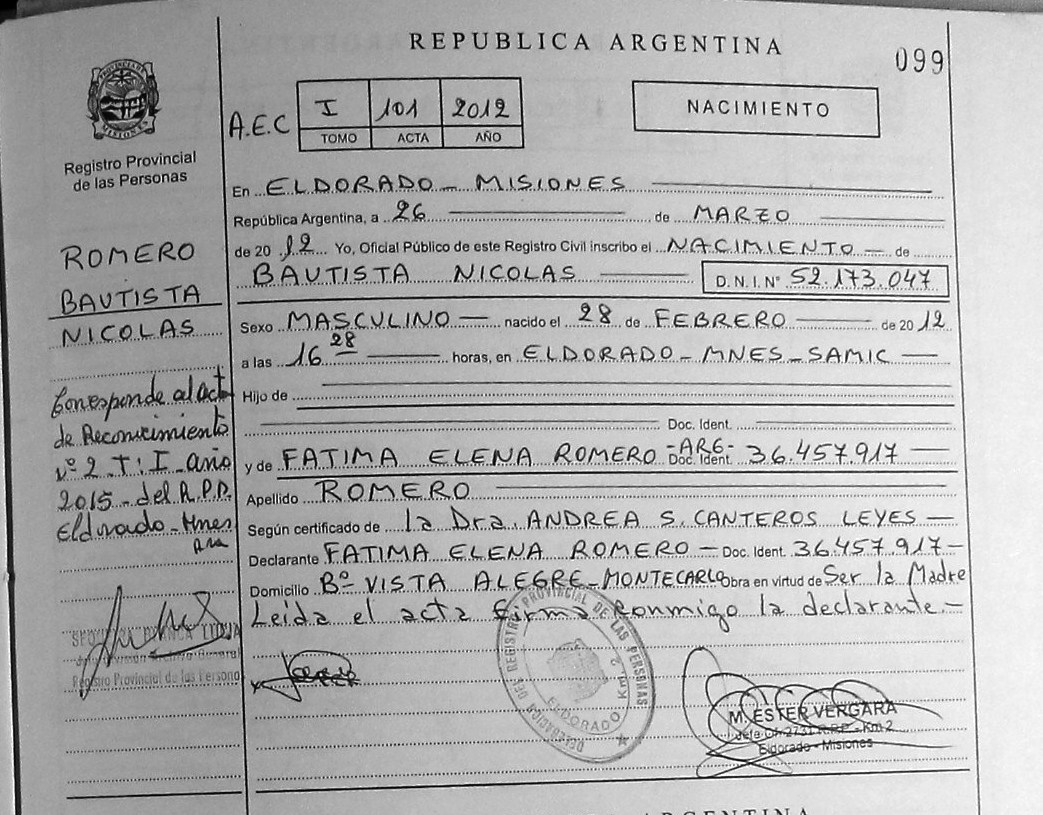 REPUBLICA ARGENTINA
099
PROVINCIA DE MISIONES
Registro Provincial
de las Personas
A.E.C
I 101 2012
TOMO ACTA AÑO
NACIMIENTO
En ELDORADO - MISIONES
República Argentina, a 26 de MARZO
de 20 12 Yo, Oficial Público de este Registro Civil inscribo el NACIMIENTO de
BAUTISTA NICOLAS D.N.I. Nº 52.173.047
Sexo MASCULINO nacido el 28 de FEBRERO de 2012
a las 16 28 horas, en ELDORADO - MNES - SAMIC
Hijo de
Doc. Ident.
y de FATIMA ELENA ROMERO -ARG- Doc. Ident. 36.457.917
Apellido ROMERO
Según certificado de la Dra. ANDREA S. CANTEROS LEYES
Declarante FATIMA ELENA ROMERO - Doc. Ident. 36.457.917-
Domicilio Bº VISTA ALEGRE - MONTECARLO Obra en virtud de Ser la Madre
Leida el acta firma conmigo la declarante -
ROMERO
BAUTISTA
NICOLAS
Corresponde al act
de Reconocimiento
nº 2 T: I año
2015 - del R.P.P.
Eldorado - Mnes
Registro Provincial de las Persona
DELEGACION DEL REGISTRO PROVINCIAL DE LAS PERSONAS
ELDORADO Km 2
M. ESTER VERGARA
Jefe Of. 2731 R.P.P. - Km 2
Eldorado - Misiones
ARGENTINA